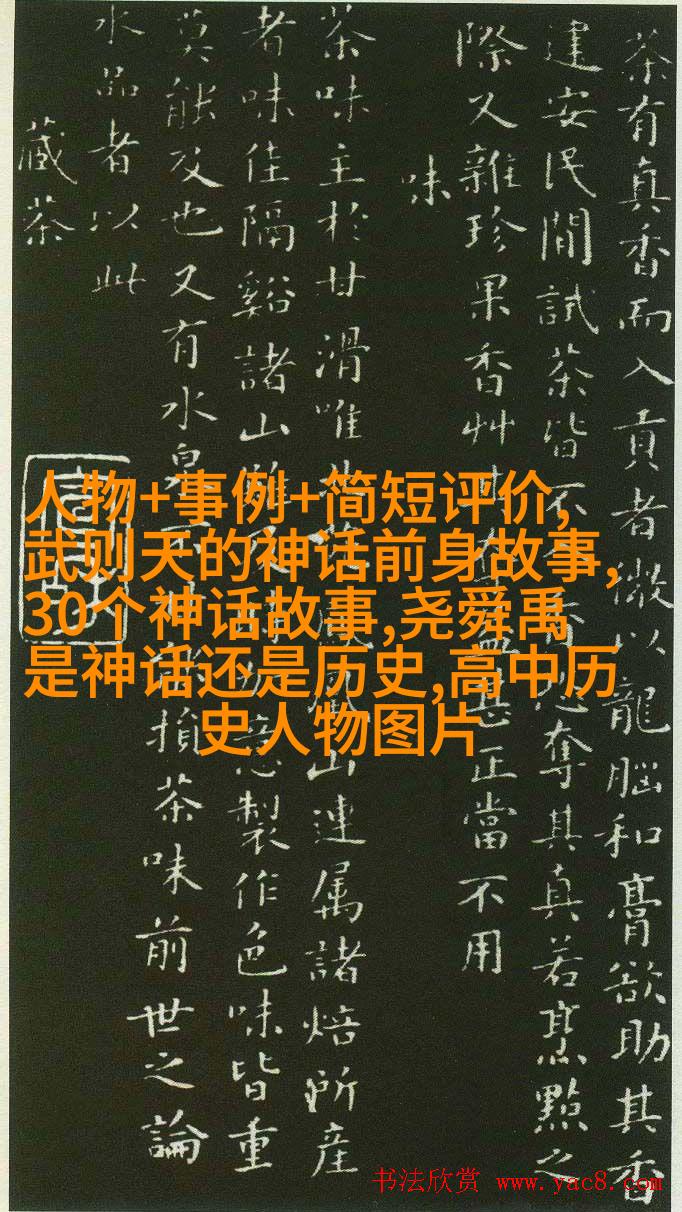 茶有真香而入貢者微以龍腦和膏欲助其香
建安民間試茶皆不奪其真若烹點之
際又雜珍果香艸其奪益甚正當不用
味
茶味主於甘滑唯鳳凰山連属諸焙所產
者味佳隔谿諸山雖及時加意製作色味皆重
莫能及也又有水泉不甘能損茶味前世之論
水品者以此
藏茶
人物+事例+简短评价,
武则天的神话前身故事,
30个神话故事,尧舜禹
是神话还是历史,高中历
史人物图片
书法欣赏 www.yac8.com